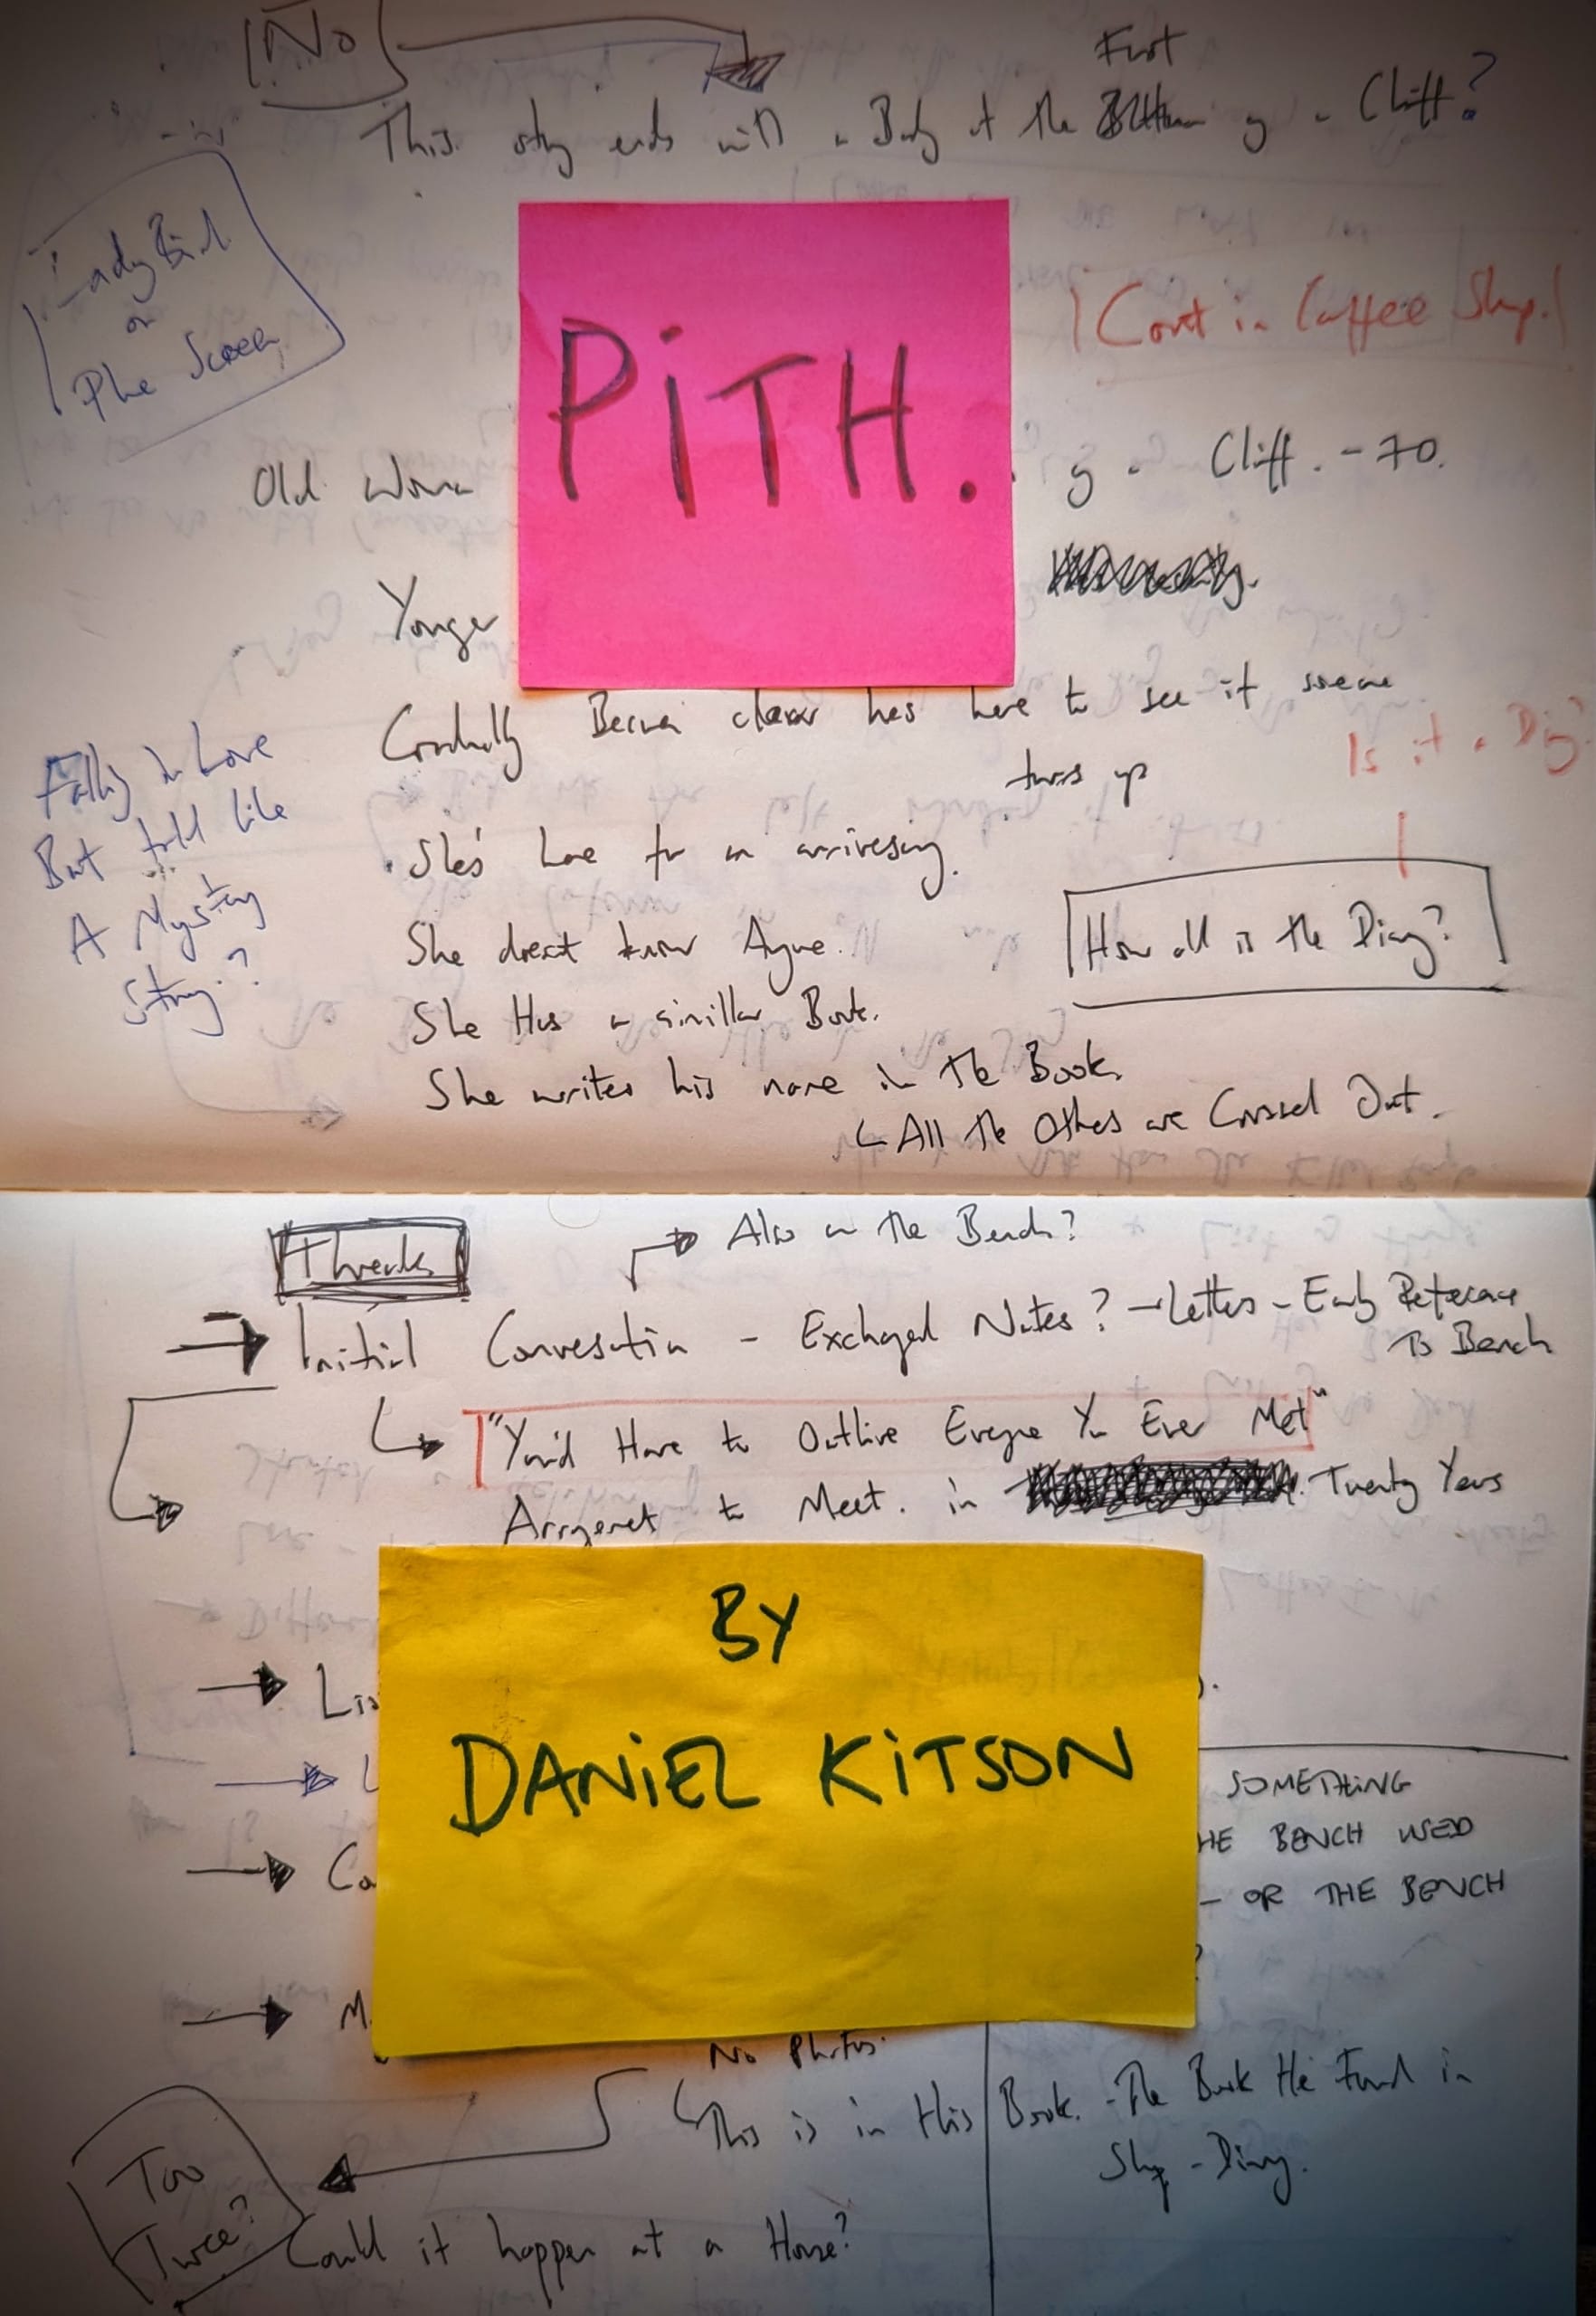 No
Foot
This story ends with a Body at the of a Cliff?
LadyBird
on
The Screen
in Coffee Shop.
PiTH.
Old Woman
of a Cliff. - 70.
Yonger
Gradually Becomes clear hes here to see if someone
turns up
Is it a Diary?
Falling in Love
But told like
A Mystery
Story?
She's here for an anniversary.
She doesnt know Anyone.
How old is the Diary?
She Has a similar Book.
She writes his name in The Book.
All The Others are Crossed Out.
Threads
Also on The Bench?
Initial Conversation - Exchanged Notes? Letters - Early Reference
To Bench
"You'd Have to Outlive Everyone You Ever Met"
Arrangement to Meet. in Twenty Years
BY
DANiEL KiTSON
Lis
L
Co
M
SOMETHiNG
HE BENCH USED
- OR THE BENCH
?
No Photos.
This is in this Book. - The Book He Found in
Shop - Diary.
Too
Twee?
Could it happen at a House?